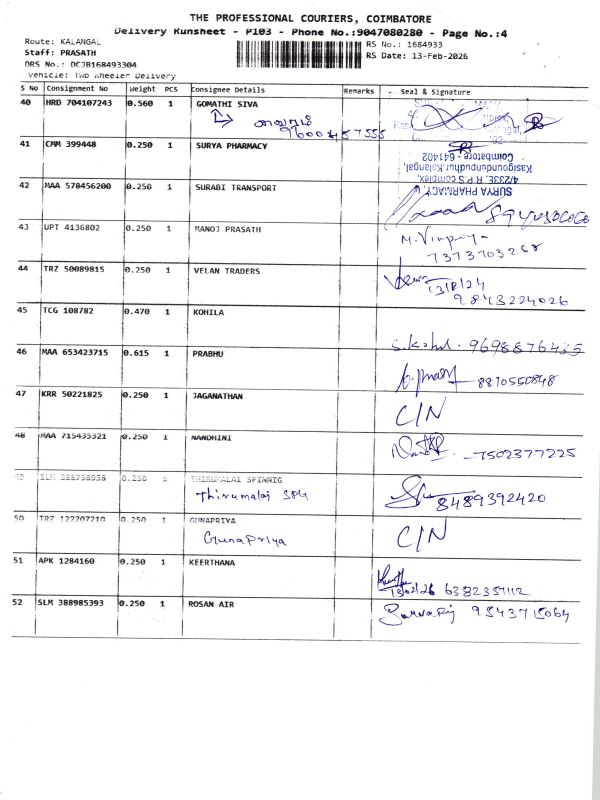 THE PROFESSIONAL COURIERS, COIMBATORE
Delivery Runsheet - P103 - Phone No.:9047080280 - Page No.:4
Route: KALANGAL
RS No.: 1684933
Staff: PRASATH
RS Date: 13-Feb-2026
DRS No.: DCJB168493304
Vehicle: Two Wheeler Delivery
S No Consignment No Weight PCS Consignee Details Remarks - Seal & Signature
40 HRD 704107243 0.560 1 GOMATHI SIVA
41 CMM 399448 0.250 1 SURYA PHARMACY
SURYA PHARMACY,
4/233E, R.P.S complex,
Kasigoundenpudhur, Kalangal,
Coimbatore - 641402
42 MAA 578456200 0.250 1 SURABI TRANSPORT
43 UPT 4136802 0.250 1 MANOJ PRASATH
7373703268
44 TRZ 50089815 0.250 1 VELAN TRADERS
9843224026
45 TCG 108782 0.470 1 KOHILA
9698876435
46 MAA 653423715 0.615 1 PRABHU
8810550848
47 KRR 50221825 0.250 1 JAGANATHAN
C/N
48 MAA 715435321 0.250 1 NANDHINI
7502377225
49 SLM 388758958 0.250 THIRUMALAI SPINNIG
Thirumalai
8489392420
50 TRZ 122207210 0.250 1 GUNAPRIYA
GunaPriya
C/N
51 APK 1284160 0.250 1 KEERTHANA
13/02/26
52 SLM 388985393 0.250 1 ROSAN AIR
9543715064